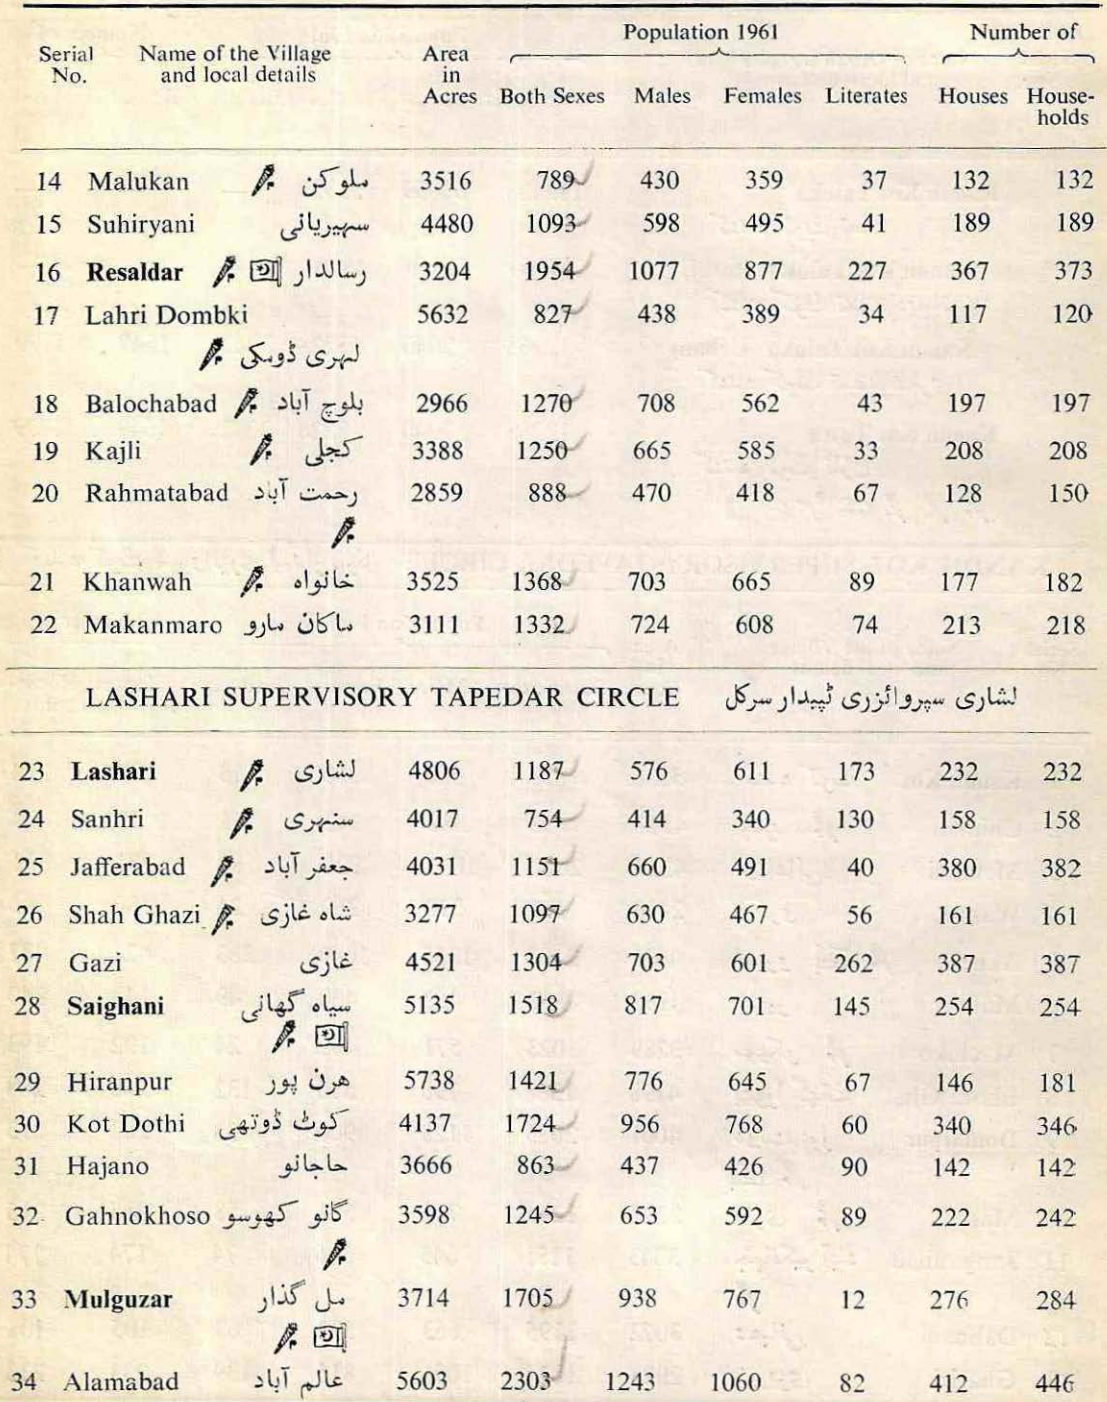 Population 1961 Number of
Serial Name of the Village Area
No. and local details in
Acres Both Sexes Males Females Literates Houses House-
holds
14 Malukan ملوکن 3516 789 430 359 37 132 132
15 Suhiryani سہیریانی 4480 1093 598 495 41 189 189
16 Resaldar رسالدار 3204 1954 1077 877 227 367 373
17 Lahri Dombki 5632 827 438 389 34 117 120
لہری ڈومبکی
18 Balochabad بلوچ آباد 2966 1270 708 562 43 197 197
19 Kajli کجلی 3388 1250 665 585 33 208 208
20 Rahmatabad رحمت آباد 2859 888 470 418 67 128 150
21 Khanwah خانواہ 3525 1368 703 665 89 177 182
22 Makanmaro ماکان مارو 3111 1332 724 608 74 213 218
LASHARI SUPERVISORY TAPEDAR CIRCLE لشاری سپروائزری ٹپیدار سرکل
23 Lashari لشاری 4806 1187 576 611 173 232 232
24 Sanhri سنہری 4017 754 414 340 130 158 158
25 Jafferabad جعفر آباد 4031 1151 660 491 40 380 382
26 Shah Ghazi شاہ غازی 3277 1097 630 467 56 161 161
27 Gazi غازی 4521 1304 703 601 262 387 387
28 Saighani سیاہ گھانی 5135 1518 817 701 145 254 254
29 Hiranpur ہرن پور 5738 1421 776 645 67 146 181
30 Kot Dothi کوٹ ڈوتھی 4137 1724 956 768 60 340 346
31 Hajano حاجانو 3666 863 437 426 90 142 142
32 Gahnokhoso گانو کھوسو 3598 1245 653 592 89 222 242
33 Mulguzar مل گذار 3714 1705 938 767 12 276 284
34 Alamabad عالم آباد 5603 2303 1243 1060 82 412 446